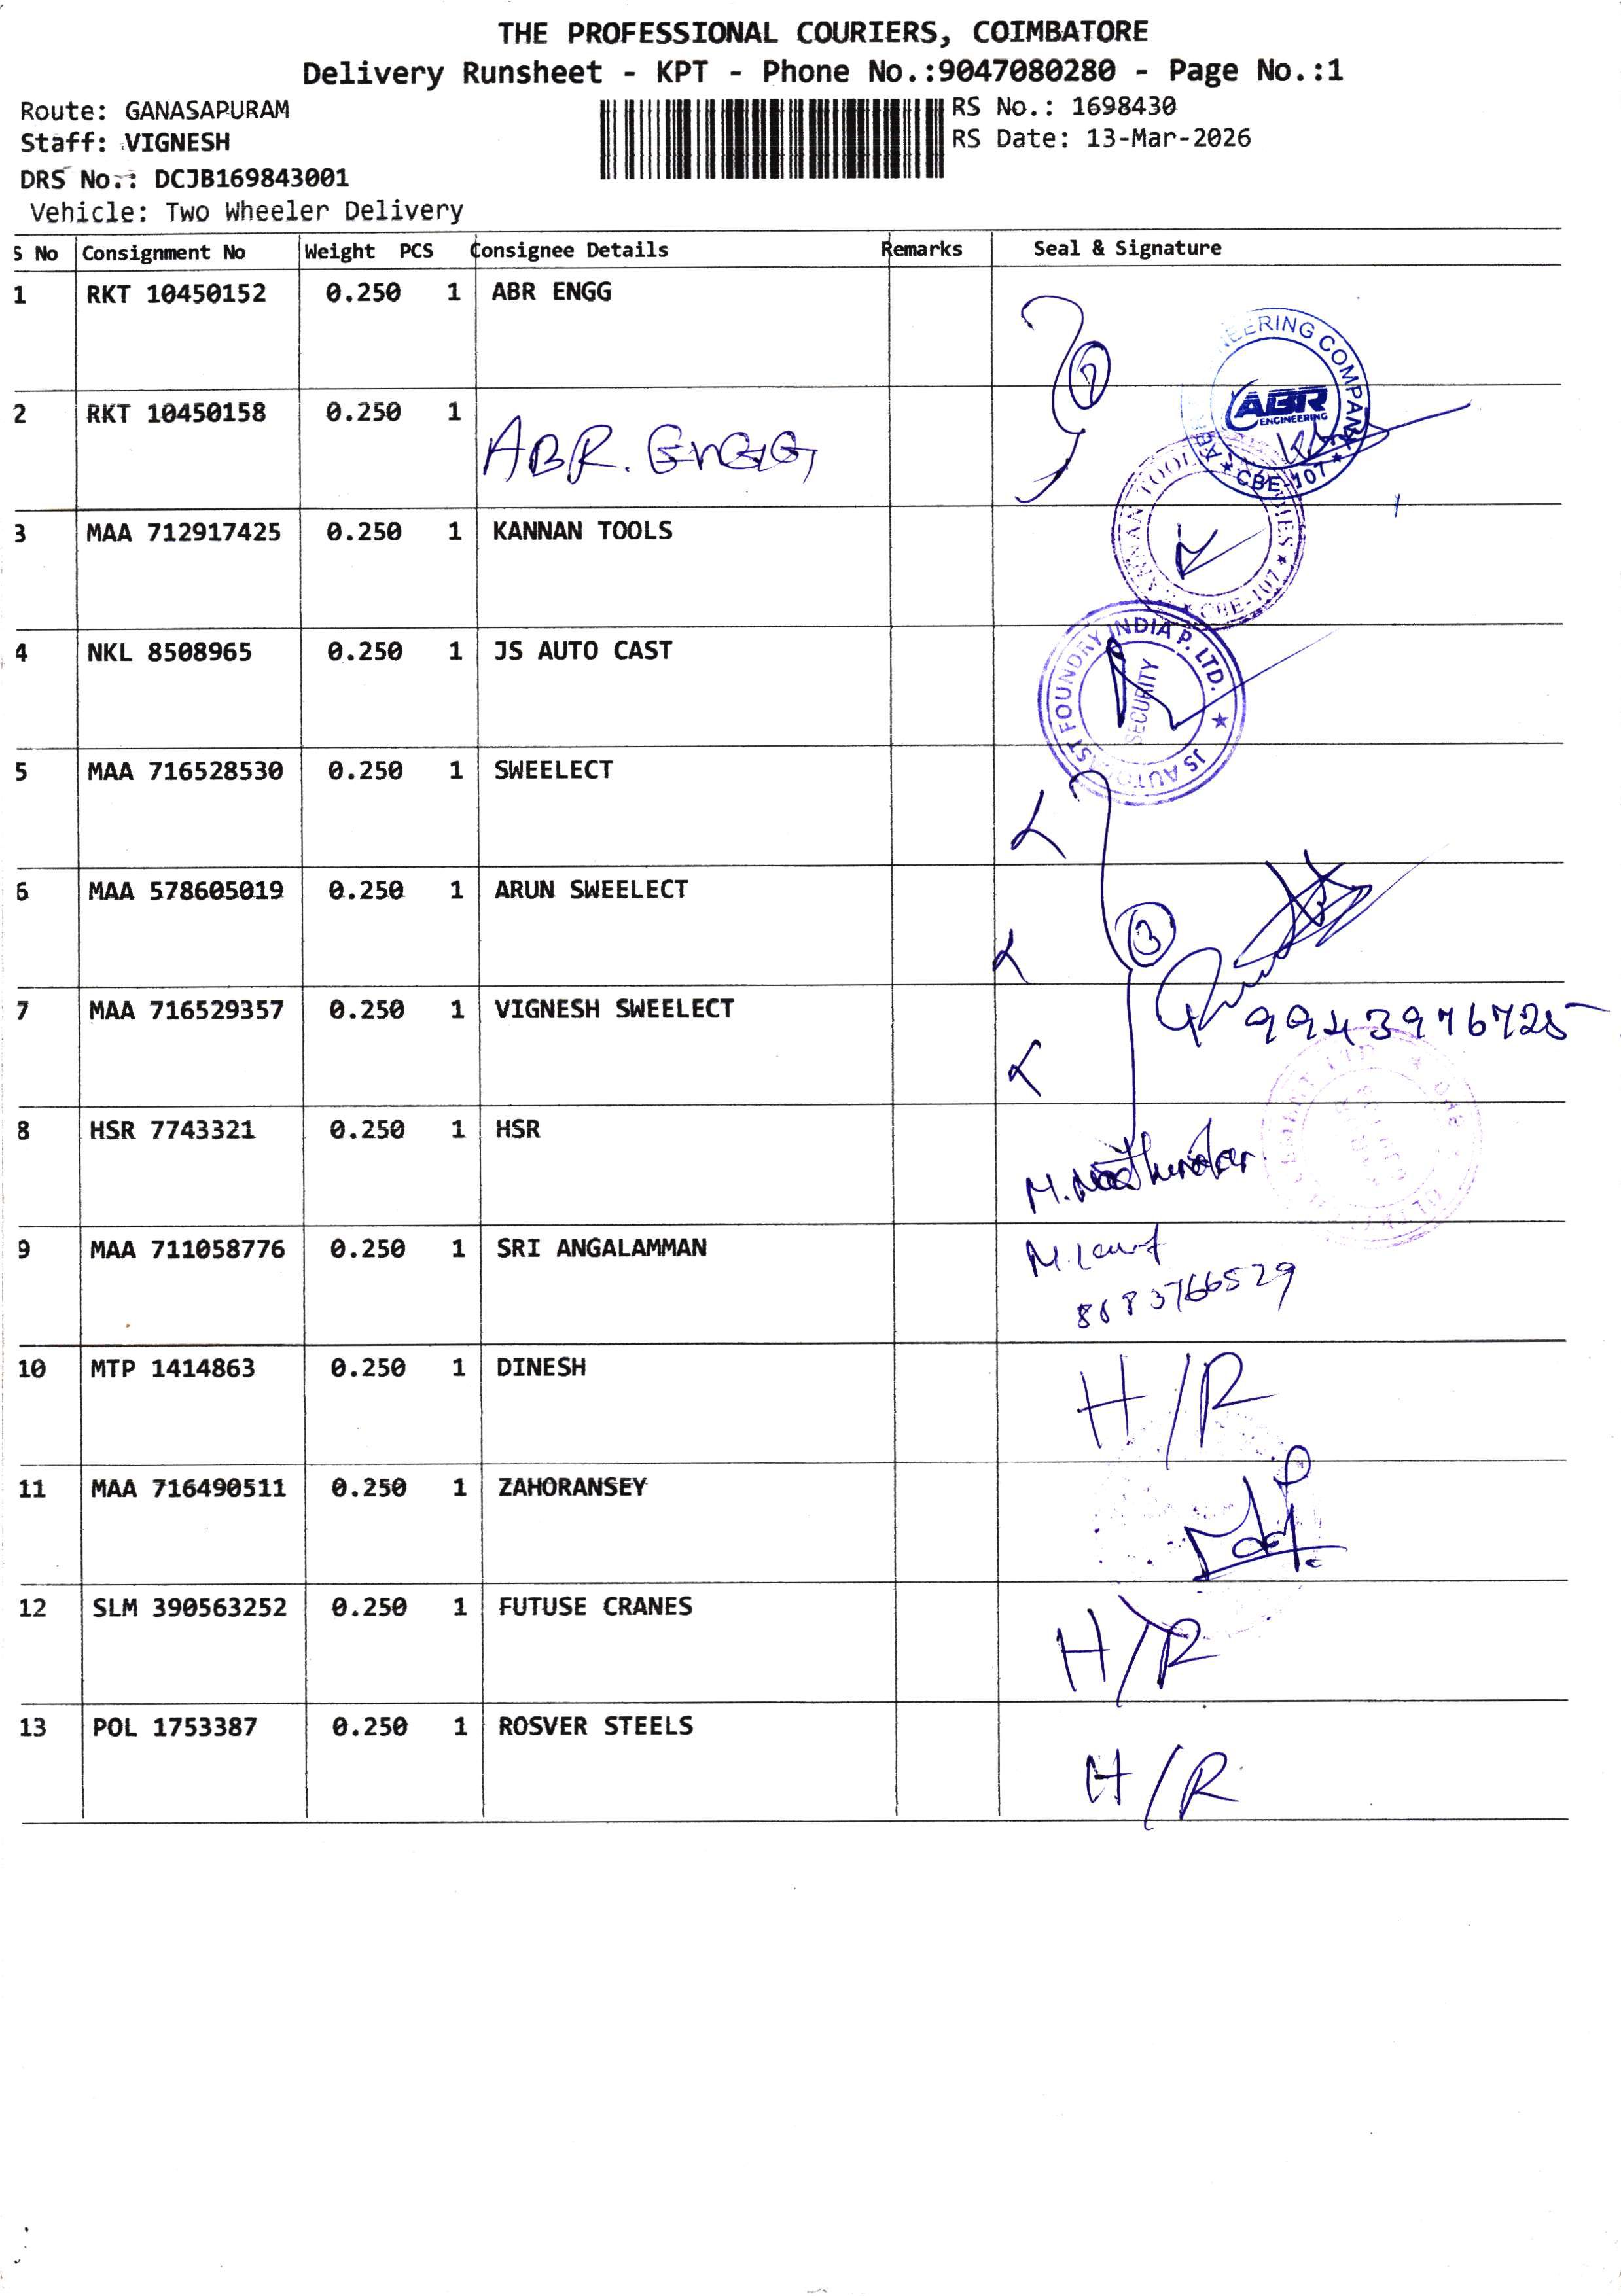 THE PROFESSIONAL COURIERS, COIMBATORE
Delivery Runsheet - KPT - Phone No.:9047080280 - Page No.:1
Route: GANASAPURAM
RS No.: 1698430
Staff: VIGNESH
RS Date: 13-Mar-2026
DRS No.: DCJB169843001
Vehicle: Two Wheeler Delivery
S No Consignment No Weight PCS Consignee Details Remarks Seal & Signature
1 RKT 10450152 0.250 1 ABR ENGG
2 RKT 10450158 0.250 1 ABR. EnGG,
ABR
ENGINEERING
CBE-107
3 MAA 712917425 0.250 1 KANNAN TOOLS
CBE-107
4 NKL 8508965 0.250 1 JS AUTO CAST
FOUNDRY INDIA P. LTD.
SECURITY
5 MAA 716528530 0.250 1 SWEELECT
6 MAA 578605019 0.250 1 ARUN SWEELECT
3
7 MAA 716529357 0.250 1 VIGNESH SWEELECT
9943976725
8 HSR 7743321 0.250 1 HSR
9 MAA 711058776 0.250 1 SRI ANGALAMMAN
10 MTP 1414863 0.250 1 DINESH H/R
11 MAA 716490511 0.250 1 ZAHORANSEY
12 SLM 390563252 0.250 1 FUTUSE CRANES H/R
13 POL 1753387 0.250 1 ROSVER STEELS H/R